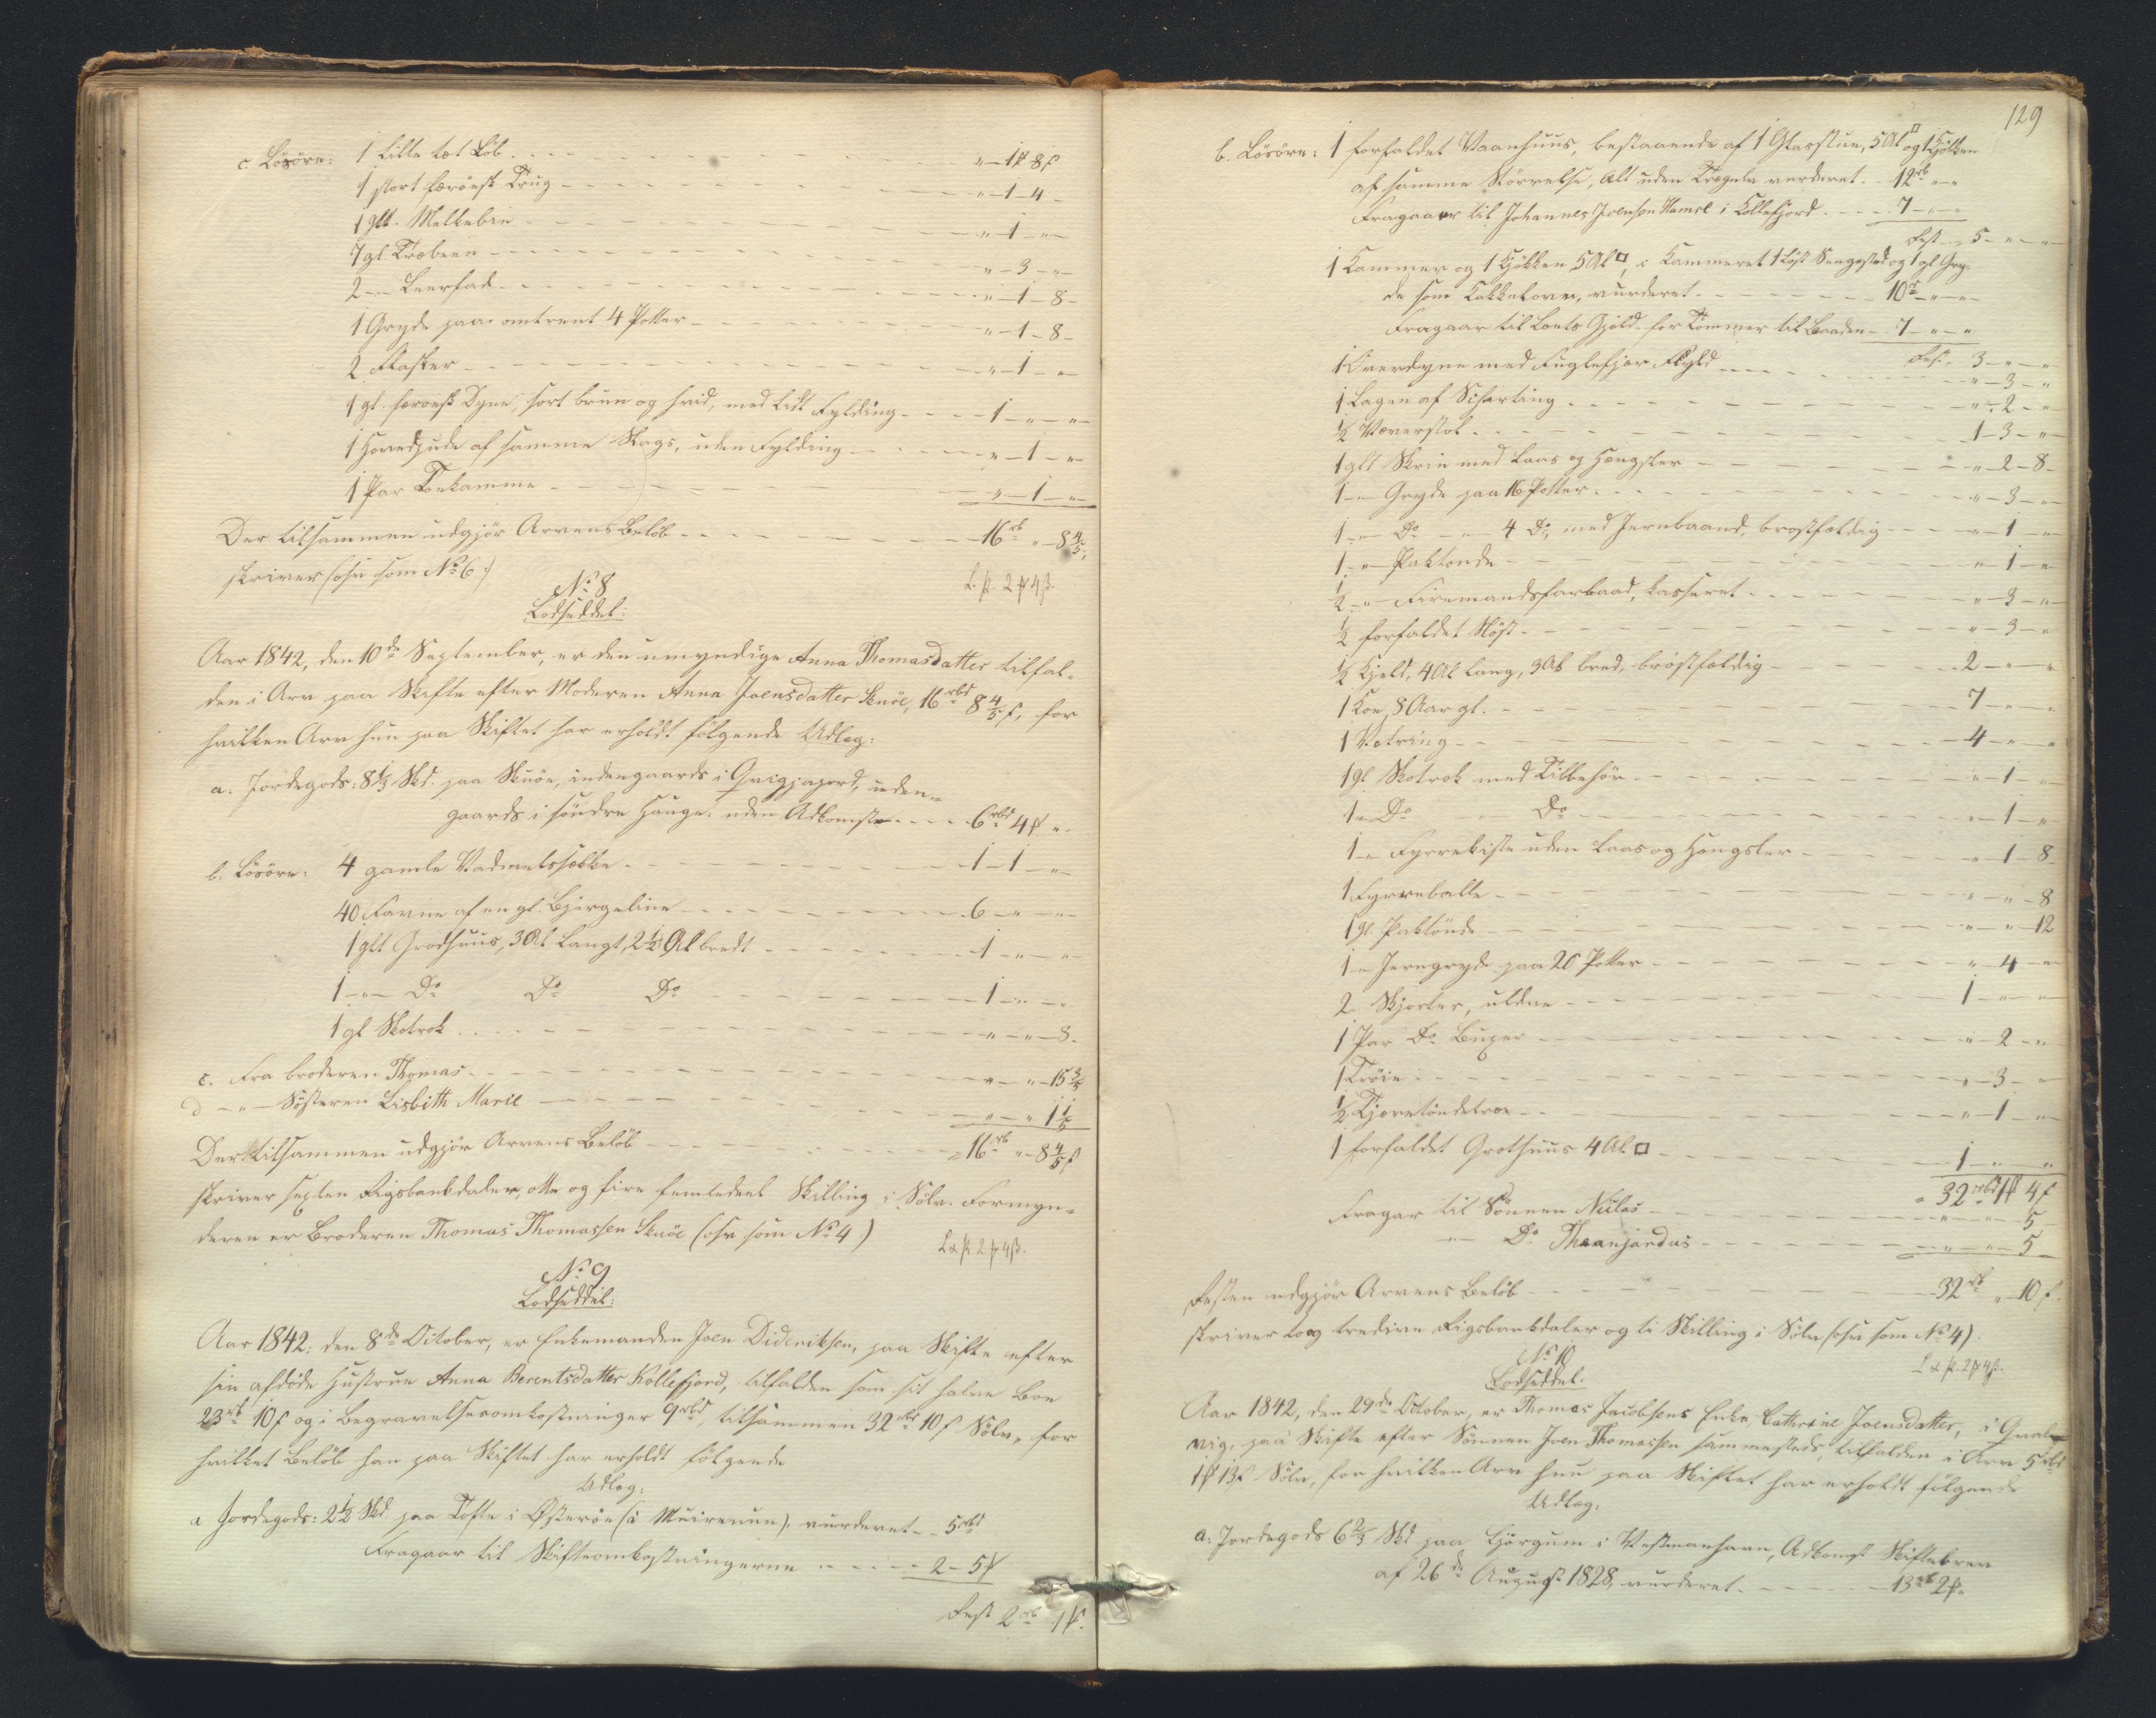 c. Lösöre: 1 lille lot Löb - - - " - 1 # 8 ß
1 stort færöisk Trug - - - " - 1 - 4 -
1 glt. Melkebin - - - " - 1 - " -
7 gl. Træben - - - " - 3 - " -
2 - " - Leerfad - - - " - 1 - 8 -
1 Gryde paa omtrent 4 Potter - - - " - 1 - 8 -
2 Flasker - - - " - 1 - " -
1 gl. færoisk Dyne, sort brun og hvid, med lidt Fylding - - - 1 - " - " -
1 Hovedpude af samme Slags, uden Fylding - - - " - 1 - " -
1 Par - - - " - 1 - " -
Der tilsammen udgjör Arvens Belöb - - - 16 rb " - 8 4/5 ß
skriver (osv som No 6.)
L. ß. 2 # 4 ß.
No 8
Lodseddel:
Aar 1842, den 10de September, er den umyndige Anna Thomasdatter tilfal-
den i Arv paa Skifte efter Moderen Anna Joensdatter Skuöe, 16 rbd 8 4/5 ß, for
hvilken Arv hun paa Skiftet har erholdt fölgende Udlæg:
a. Jordegods: 8 1/3 Skd. paa Skuöe, indengaards i , uden-
gaards i söndre Hauge. uden Adkomst - - - 6 rbd 4 # "
b. Lösöre: 4 gamle Vadmelssække - - - 1 - 1 - " -
40 Favne af en gl. Bjergeline - - - 6 - " - " -
1 glt Grodhuus, 3 Al langt, 2 1/2 Al bredt - - - 1 - " - " -
1 - " - Do Do Do - - - 1 - " - " -
1 gl Skotrok - - - " - " - 8 -
c. Fra broderen Thomas - - - " - " - 15 3/5
d - " - Söster Lisbith Marie - - - " - " 1 1/5
Der tilsammen udgjör Arvens Belöb - - - 16 rb " - 8 4/5 ß
skriver sexten Rigsbankdaler, otte og fire femtedeel Skilling i Sölv. Formyn-
deren er Broderen Thomas Thomassen Skuöe (osv som No 4)
L & ß 2 # 4 ß.
No 9
Lodseddel:
Aar 1842, den 8de October, er Enkemanden Joen Dideriksen, paa Skifte efter
sin afdöde Hustrue Anna Berentsdatter Kollefjord, tilfalden som sit halve Boe
23 rb 10 ß og i Begravelsesomkostninger 9 rbd, tilsammen 32 rbd 10 ß Sölv, for
hvilket Belöb han paa Skiftet har erholdt fölgende
Udlæg:
a Jordegods: 2 1/2 Skd. paa Tofte i Österöe (i Muirenun). vurderet - - 5 rbd
Fragaar til Skifteomkostningerne - - - 2 - 5 #
Rest 2 rb 1 #.
129
b. Lösöre: 1 forfaldet Vaanhuus, bestaaende af 1 Glasstue, 5 Al □ og 1 Kjökken
af samme Störrelse, Alt uden vurderet - - 12 rb " - "
Fragaar til Johannes Joensen Hamre i Kollefjord - - - 7 - " - "
Rest - - 5 - " - " -
1 Kammer og 1 Kjökken 5 Al □, i Kammeret 1 löst Sengested og 1 gl Gry-
de som Kakkelovn, vurderet - - - 10 rb - " - " -
Fragaar til Boets Gjeld for Tömmer til Baaden - 7 - " - "
Rest - 3 - " - "
1 Overdyne med Fuglefjær Fyld - - - " - 3 - "
1 Lagen af Schærting - - - " - 2 - "
1/2 Væverstol - - - 1 - 3 - " -
1 glt Skrin med Laas og Hængsler - - - " - 2 - 8 -
1 - " - Gryde paa 16 Potter - - - " - 3 - " -
1 - " - Do - " - 4 Do med Jernbaand, bröstfældig - - - " - 1 - "
1 - " - Saltönde - - - " - 1 - "
1/2 - " - Firemandsfarbaad, kasseret - - - " - 3 - " -
1/2 forfaldet Nöst - - - " - 3 - "
1/2 Kjeld, 4 Al lang, 3 Al bred, bröstfældig - - - 2 - " - "
1 Koe, 8 Aar gl. - - - 7 - " - "
1 Vetring - - - 4 - " - "
1 gl. Skotrok med Tilbehör - - - " - 1 - "
1 - " - Do - " - Do - - - " - 1 - "
1 - " - Fyrrekiste uden Laas og Hængsler - - - " - 1 - 8
1 Fyrreballe - - - " - " - 8
1 gl. Saltönde - - - " - " - 12
1 - " - Jerngryde paa 20 Potter - - - " - 4 - " -
2 Skjorter, uldne - - - 1 - " - "
1 Par Do Buxer - - - " - 2 - "
1 Tröie - - - " - 3 - "
1/2 Tjæretöndetræe - - - " - 1 - "
1 forfaldet Grothuus 4 Al □ - - - 1 - " - "
32 rbd 1 # 4 ß
Fragaar til Sönnen Niclas - - - " - " - 5
- " - Do Thranjardus - - - " - " - 5 -
Resten udgjör Arvens Belöb - - - 32 rb " 10 ß.
skriver to og tredive Rigsbankdaler og ti Skilling i Sölv (osv som No 4).
L & ß 2 # 4 ß.
No 10
Lodseddel.
Aar 1842, den 29de October, er Thomas Jacobsens Enke Cathrine Joensdatter, i Qval-
vig, paa Skifte efter Sönnen Joen Thomassen sammesteds, tilfalden i Arv 5 rbd
1 # 13 ß Sölv, for hvilken Arv hun paa Skiftet har erholdt fölgende
Udlæg:
a. Jordegods 6 2/3 Skd paa Gjörgum i Vestmanhavn, Adkomst Skiftebrev
af 26de August 1828, vurderet - - - 13 rb 2 #.